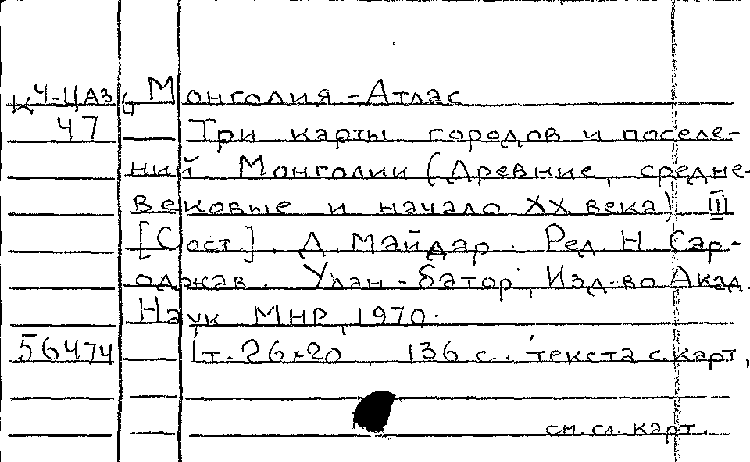 К4-ЦАЗ Монголия - Атлас
47 Три карты городов и поселе-
ний Монголии (Древние, средне-
вековые и начало XX века) III
[Сост.] Д. Майдар. Ред. Н. Сар-
оджав. Улан-Батор, Изд-во Акад.
Наук МНР, 1970.
56474 1т. 26×20 136 с. текста с карт,
см. сл. карт.